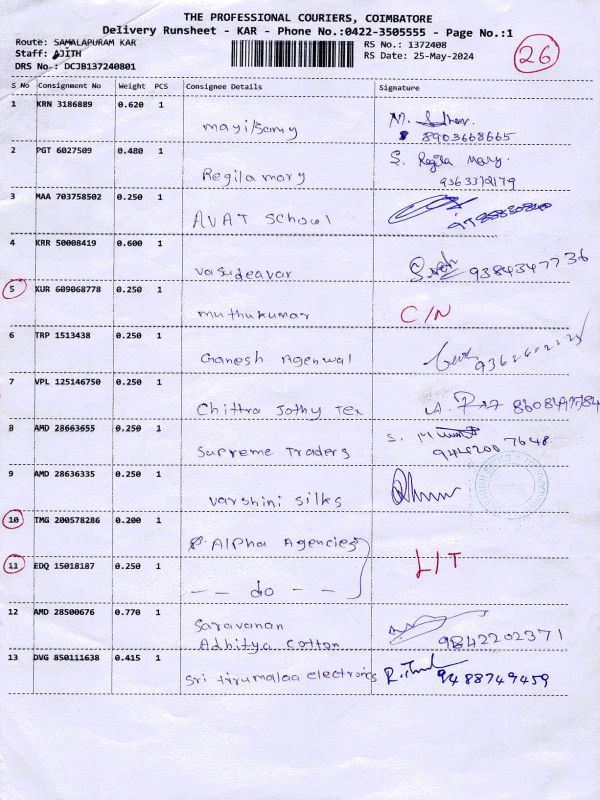 THE PROFESSIONAL COURIERS, COIMBATORE
Delivery Runsheet - KAR - Phone No.:0422-3505555 - Page No.:1
Route: SAMALAPURAM KAR
Staff: AJITH
DRS No.: DCJB137240801
RS No.: 1372408
RS Date: 25-May-2024
26
S No Consignment No Weight PCS Consignee Details Signature
1 KRN 3186889 0.620 1
mayilsamy
8903668665
2 PGT 6027509 0.480 1
Regila mary S. Regila Mary.
3 MAA 703758502 0.250 1
AVAT School
4 KRR 50008419 0.600 1
vasudeavar 9384347736
5 KUR 609068778 0.250 1
muthukumar C/N
6 TRP 1513438 0.250 1
Ganesh Agenwal
7 VPL 125146750 0.250 1
Chittra Jothy Tex
8 AMD 28663655 0.250 1
Supreme Traders
9 AMD 28636335 0.250 1
varshini silks
10 TMG 200578286 0.200 1
Alpha Agencies
L/T
11 EDQ 15018187 0.250 1
-- do --
12 AMD 28500676 0.770 1
Saravanan
Adhitya cotton 9842202371
13 DVG 850111638 0.415 1
Sri tirumalaa electronics 9488749459